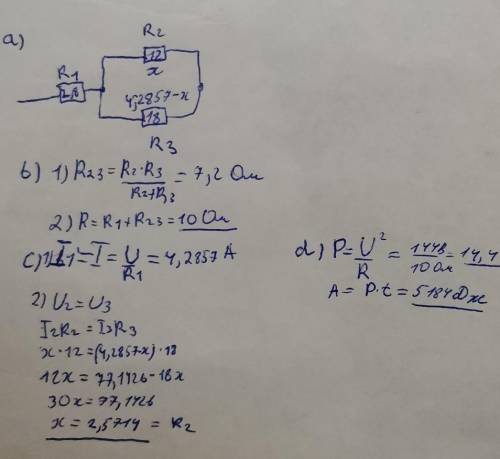 a)
R2
12
x
R1
2,8
4,2857-x
18
R3
b) 1) R23 = R2·R3 / R2+R3 = 7,2 Ом
2) R = R1 + R23 = 10 Ом
c) 1) I1 = I = U / R1 = 4,2857 A
2) U2 = U3
I2R2 = I3R3
x·12 = (4,2857-x)·18
12x = 77,1426 - 18x
30x = 77,1426
x = 2,5714 = R2
d) P = U² / R = 144В / 10 Ом = 14,4
A = P·t = 5184 Дж